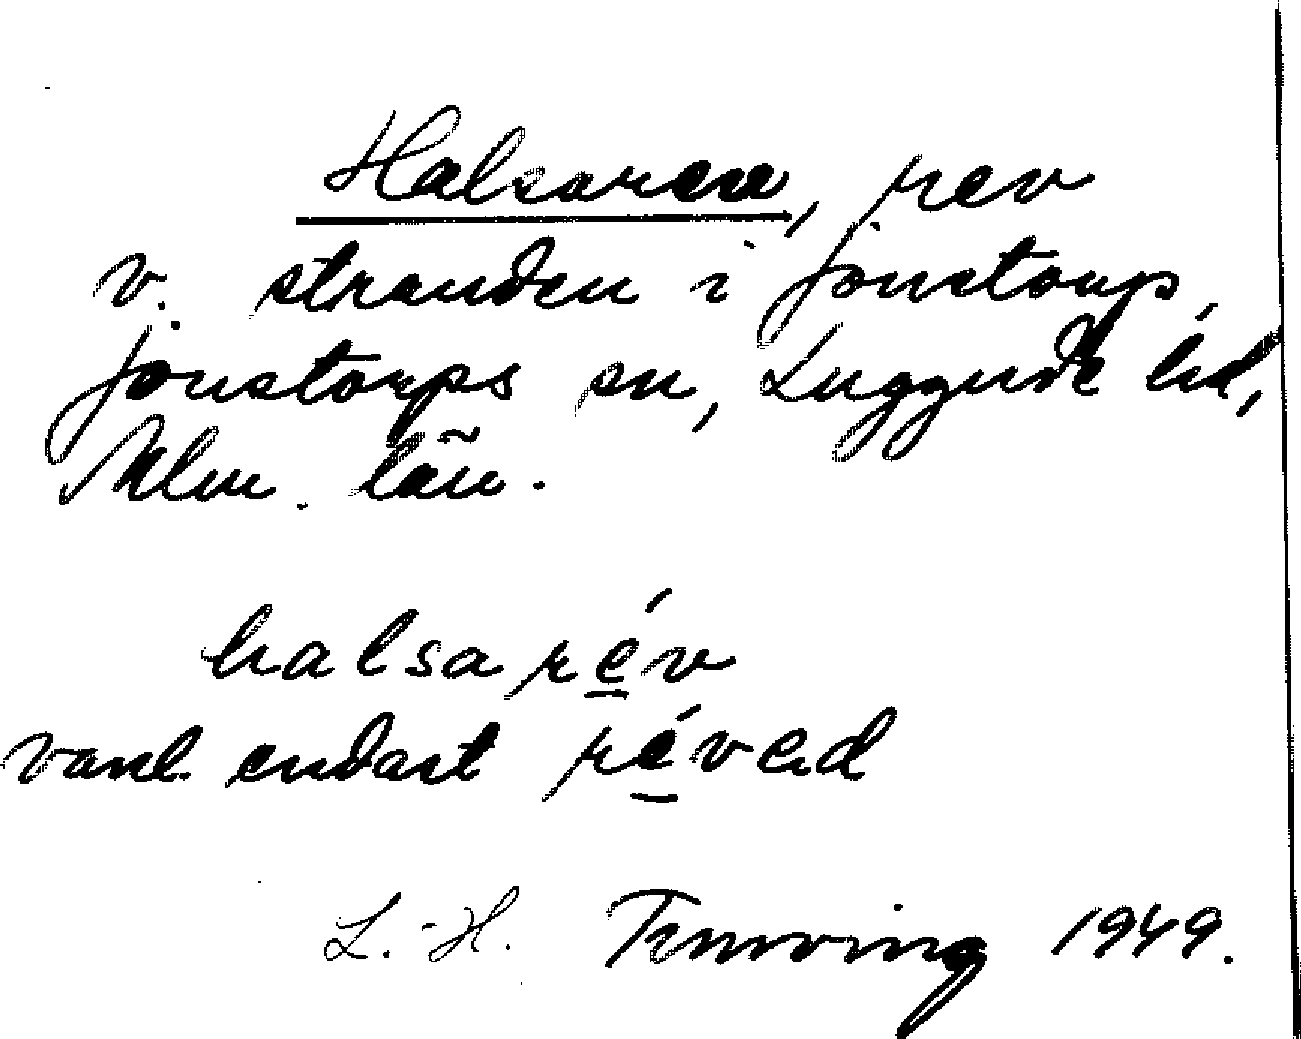 Halsarev, rev
v. stranden i Jonstorp,
Jonstorps sn, Luggude hd,
Mlm. län.
halsarév
vanl. endast réved
L.-H. 1949.